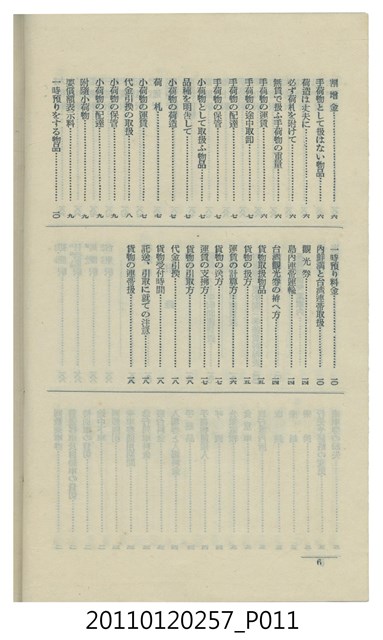 割増金……六
手荷物として扱はない物品……六
荷造は丈夫に……六
必ず荷札を附けて……六
無賃で扱ふ手荷物の重量……六
手荷物の運賃……六
手荷物の途中取卸……七
手荷物の配達……七
手荷物の保管……七
小荷物として取扱ふ物品……七
品種を明告して……七
小荷物の荷造……七
荷札……七
小荷物の運賃……七
代金引換の取扱……八
小荷物の保管……九
小荷物の配達……九
附随小荷物……九
要償額表示料……九
一時預りをする物品……一〇
一時預り料金……一〇
内鮮満と台湾連帯取扱……一〇
観光券……一四
島内連帯運輸……一四
台湾観光券の備へ方……一四
貨物取扱物品……一五
貨物の扱方……一五
運賃の計算方……一六
貨物の送方……一七
運賃の支拂方……一七
貨物の引取方……一八
代金引換……一八
貨物受付時間……一八
託送、引取に就ての注意……一八
貨物の連帯扱……一八
6
20110120257_P011